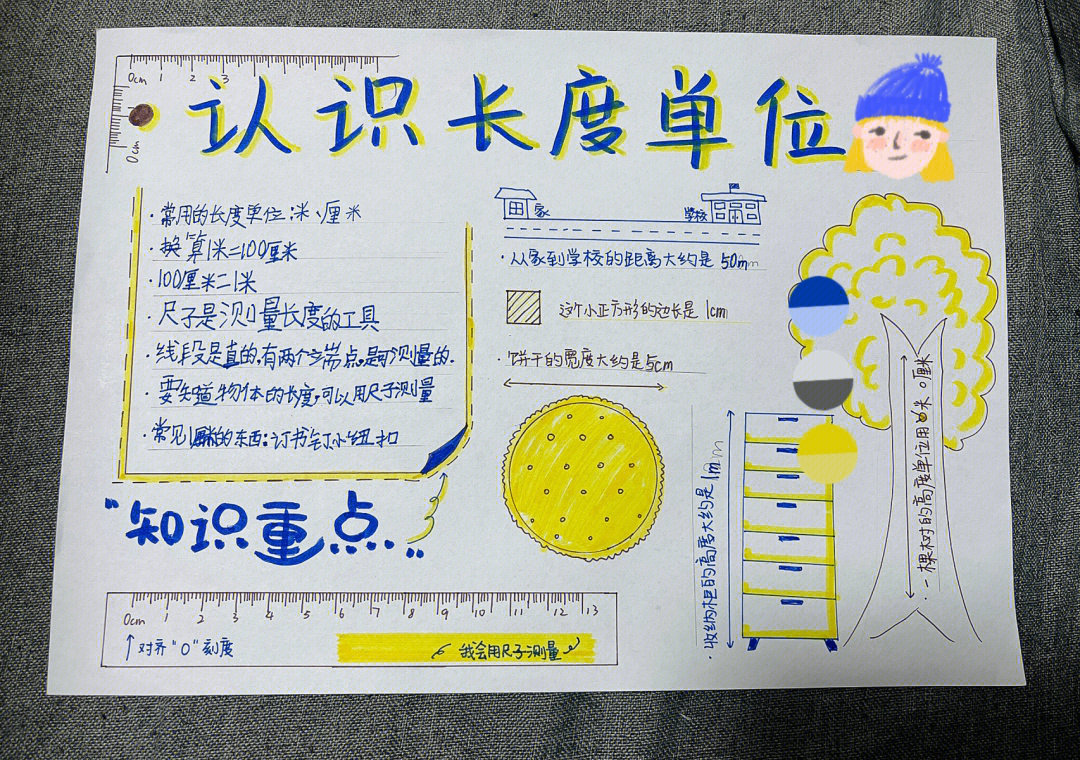 认识长度单位
0cm 1 2 3
0cm
·常用的长度单位:米、厘米
·换算1米=100厘米
·100厘米=1米
·尺子是测量长度的工具
·线段是直的,有两个端点,是可测量的.
·要知道物体的长度,可以用尺子测量
·常见1厘米的东西:订书钉、小纽扣
"知识重点..."
0cm 1 2 3 4 5 6 7 8 9 10 11 12 13
↑对齐"0"刻度
我会用尺子测量
家
学校
·从家到学校的距离大约是 50m
这个小正方形的边长是 1cm
·饼干的宽度大约是5cm
·收纳柜的高度大约是1m
·一棵树的高度单位用 ○米 ○厘米